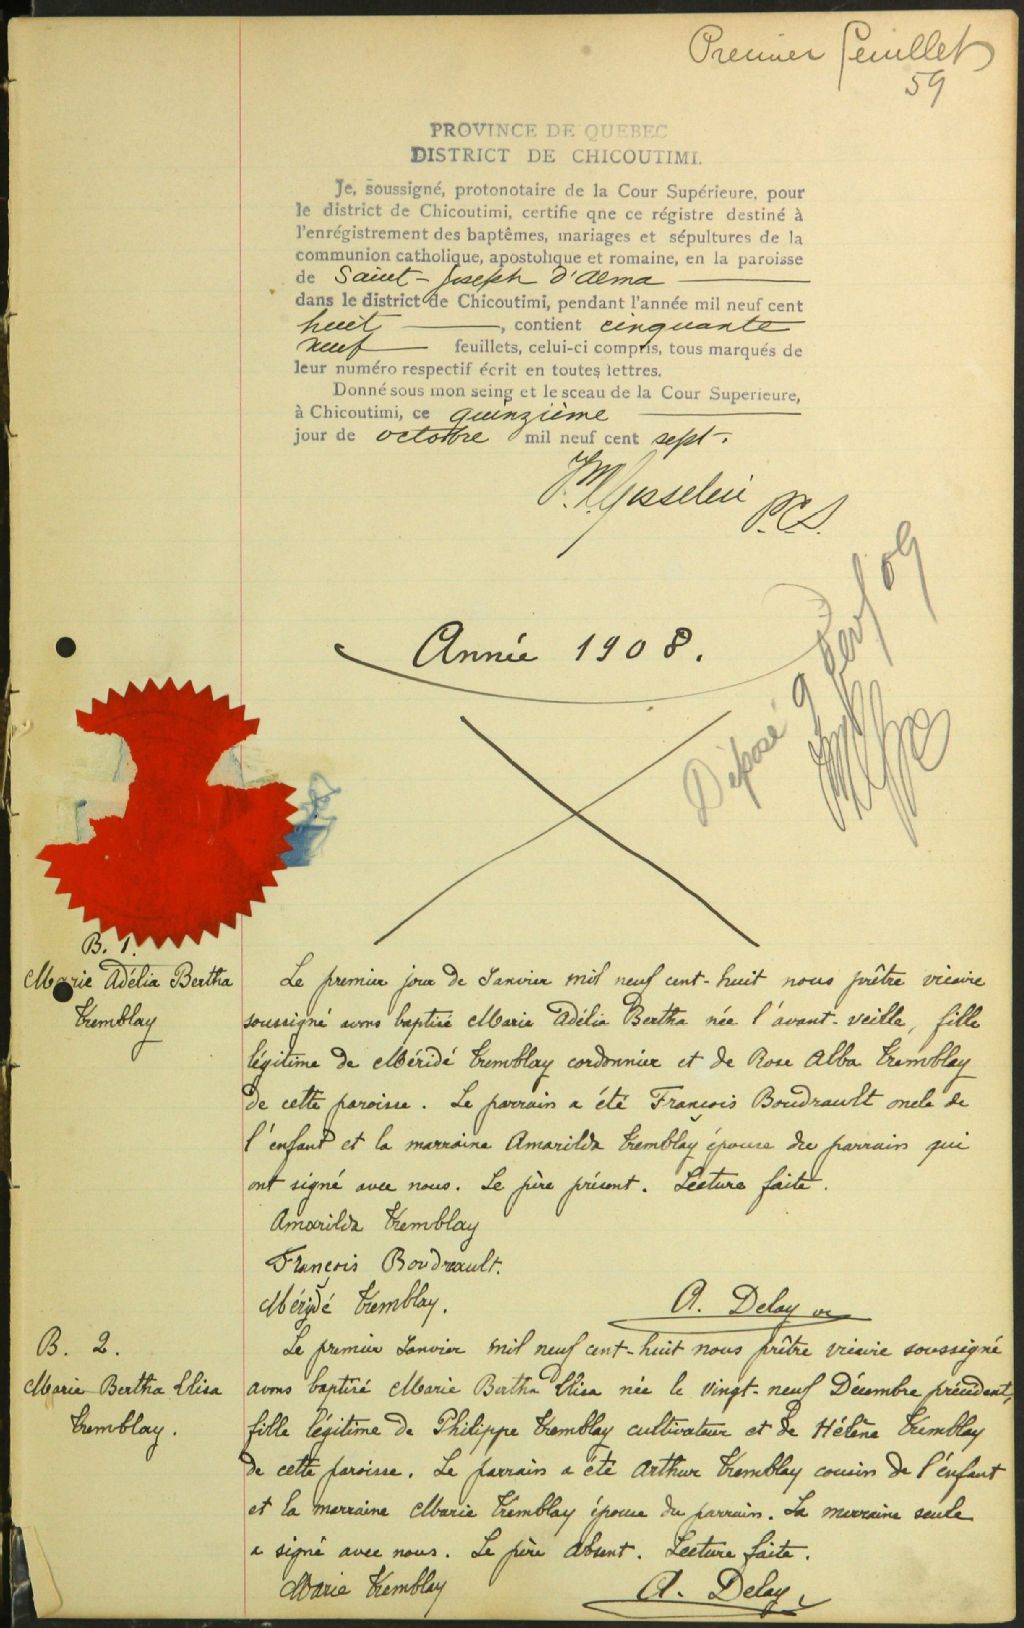 Premier feuillet
59
PROVINCE DE QUEBEC
DISTRICT DE CHICOUTIMI.
Je, soussigné, protonotaire de la Cour Supérieure, pour
le district de Chicoutimi, certifie qne ce régistre destiné à
l'enrégistrement des baptêmes, mariages et sépultures de la
communion catholique, apostolique et romaine, en la paroisse
de Saint-Joseph d'Alma
dans le district de Chicoutimi, pendant l'année mil neuf cent
huit, contient cinquante
neuf feuillets, celui-ci compris, tous marqués de
leur numéro respectif écrit en toutes lettres.
Donné sous mon seing et le sceau de la Cour Superieure,
à Chicoutimi, ce quinzième
jour de octobre mil neuf cent sept.
P.C.S.
Année 1908.
Déposé 9 09
B. 1.
Marie Adélia Bertha
Tremblay
Le premier jour de Janvier mil neuf cent-huit nous prêtre vicaire
soussigné avons baptisé Marie Adélia Bertha née l'avant-veille, fille
légitime de Méridé Tremblay cordonnier et de Rose Alba Tremblay
de cette paroisse. Le parrain a été François Boudrault oncle de
l'enfant et la marraine Amarilda Tremblay épouse du parrain qui
ont signé avec nous. Le père présent. Lecture faite.
Amarilda Tremblay
François Boudreault.
Méridé Tremblay. A. Delay
B. 2.
Marie Bertha Elisa
Tremblay.
Le premier Janvier mil neuf cent-huit nous prêtre vicaire soussigné
avons baptisé Marie Bertha Elisa née le vingt-neuf Décembre précédent,
fille légitime de Philippe Tremblay cultivateur et de Hélène Tremblay
de cette paroisse. Le parrain a été Arthur Tremblay cousin de l'enfant
et la marraine Marie Tremblay épouse du parrain. La marraine seule
a signé avec nous. Le père absent. Lecture faite.
Marie Tremblay A. Delay